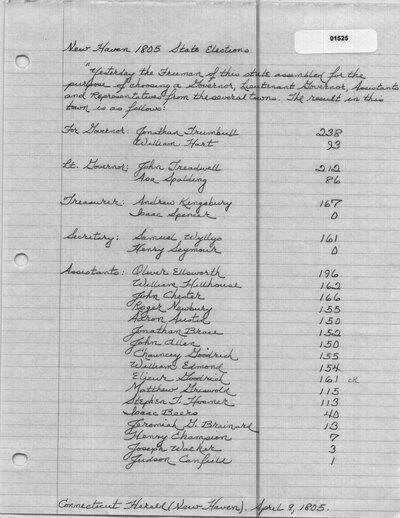 01525
New Haven 1805 State Elections
"Yesterday the Freeman of this state assembled for the
purpose of choosing a Governor, Lieutenant Governor, Assistants
and Representatives from the several towns. The result in this
town is as follows:
For Governor: Jonathan Trumbull 238
William Hart 93
Lt. Governor: John Treadwell 212
Asa Spalding 86
Treasurer: Andrew Kingsbury 167
Isaac Spencer 0
Secretary: Samuel Wyllys 161
Henry Seymour 0
Assistants: Oliver Ellsworth 196
William Hillhouse 162
John Chester 166
Roger Newbury 155
Aaron Austin 150
Jonathan Brace 152
John Allen 150
Chauncey Goodrich 155
William Edmond 154
Elizur Goodrich 161 ck
Matthew Griswold 115
Stephen T. Hosmer 113
Isaac Beers 40
Jeremiah G. Brainard 13
Henry Champion 7
Joseph Walker 3
Judson Canfield 1
Connecticut Herald (New Haven). April 9, 1805.